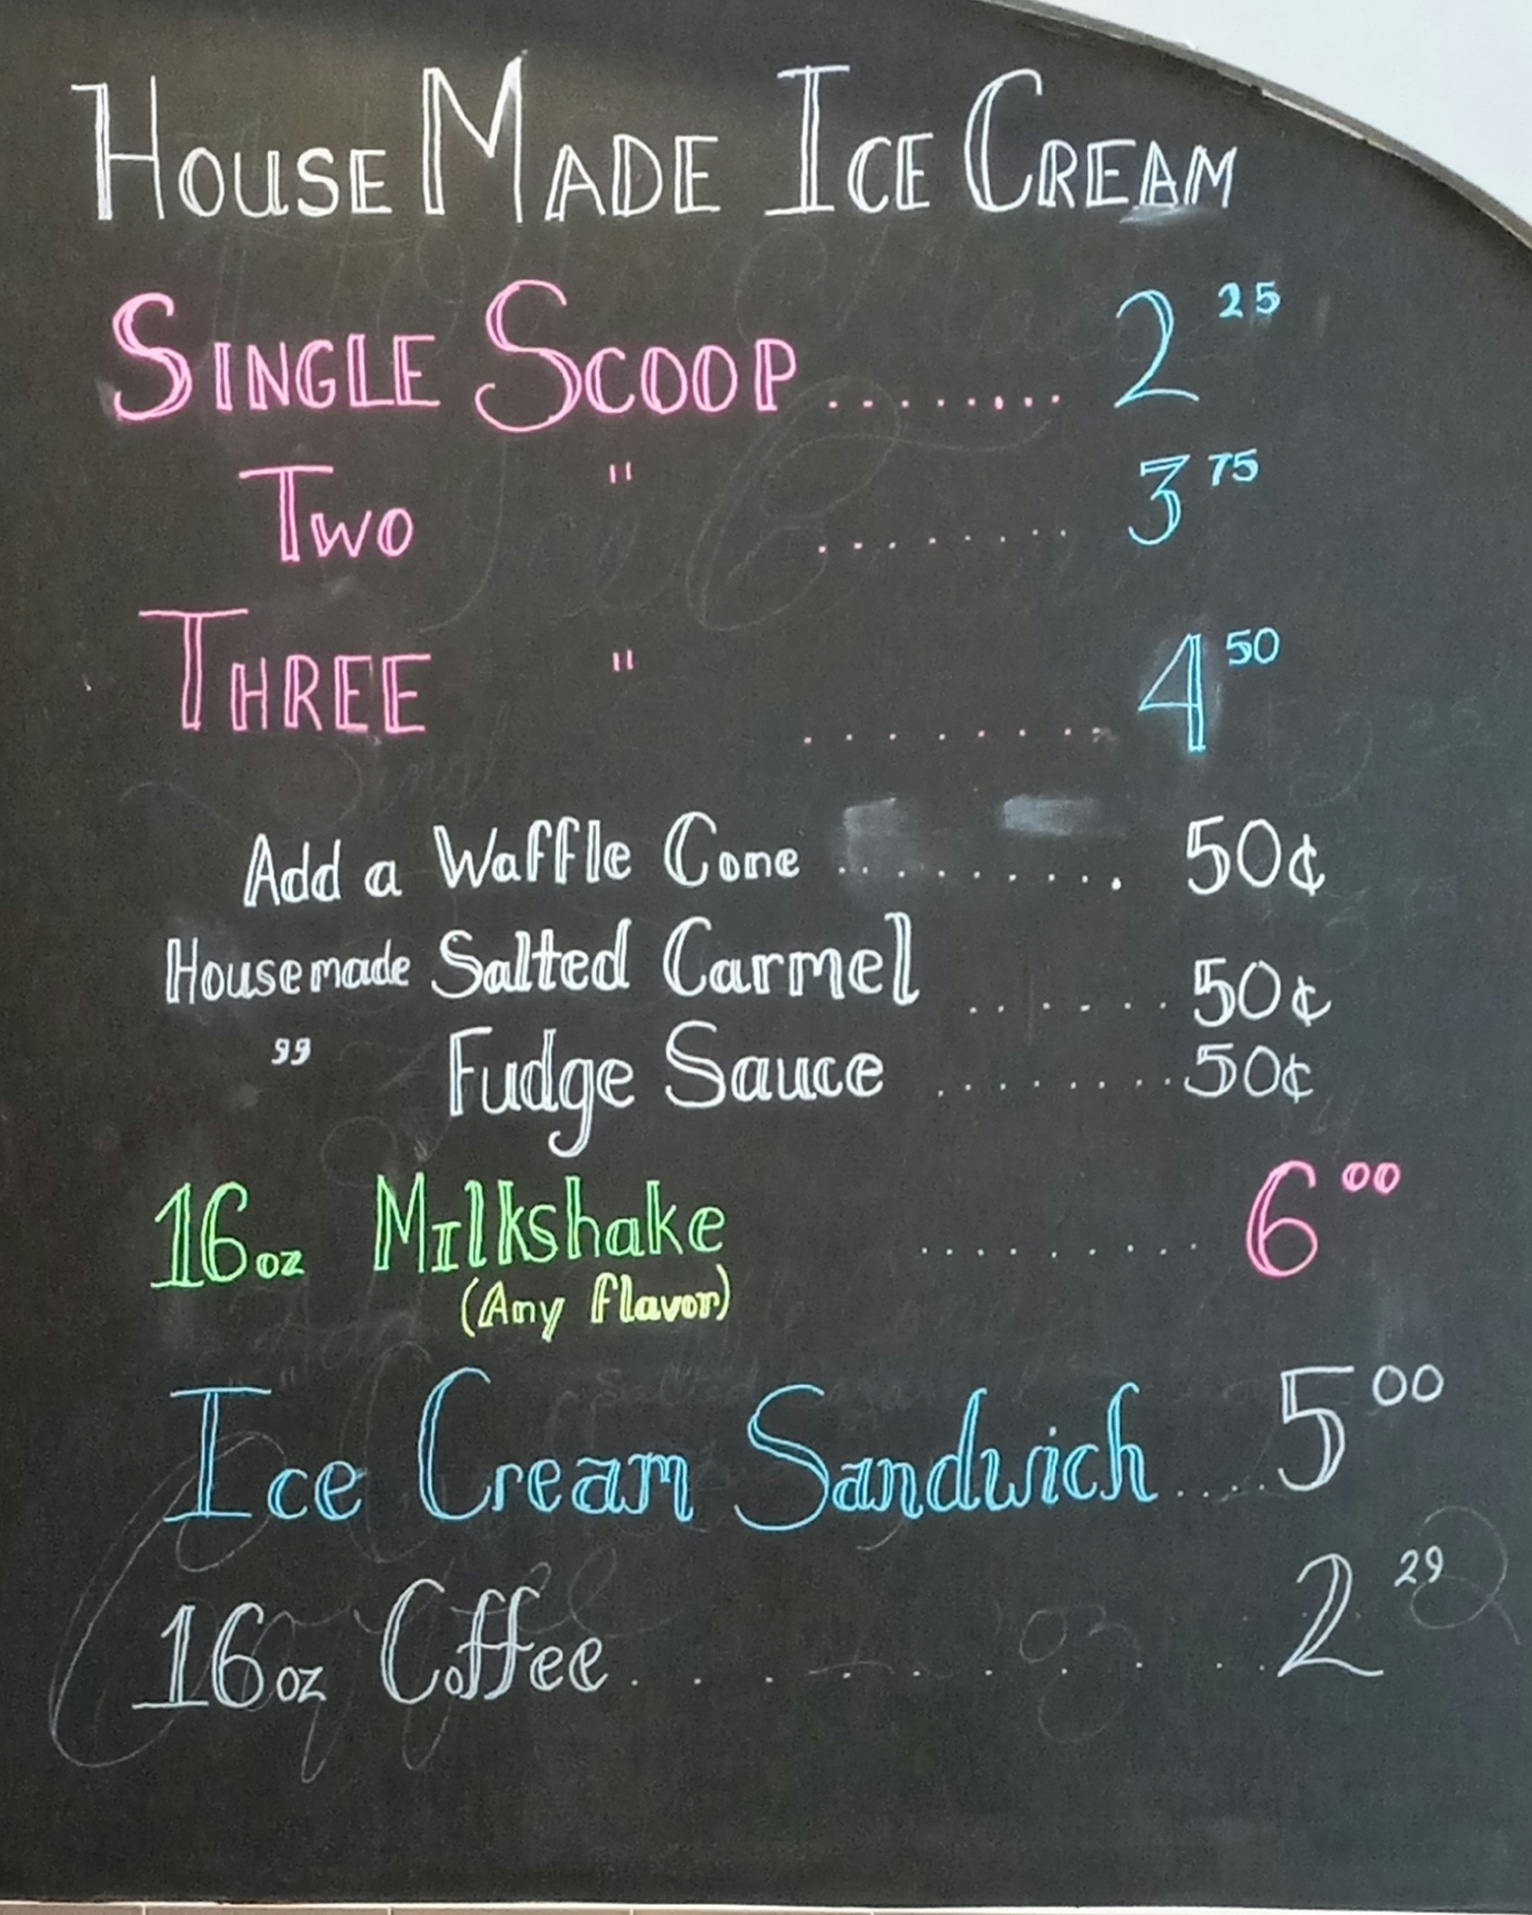 House Made Ice Cream
Single Scoop ........ 2 25
Two " ........ 3 75
Three " ......... 4 50
Add a Waffle Cone .......... 50¢
Housemade Salted Carmel ...... 50¢
" Fudge Sauce ......... 50¢
16oz Milkshake .......... 6 00
(Any flavor)
Ice Cream Sandwich .... 5 00
16oz Coffee.......... 2 29